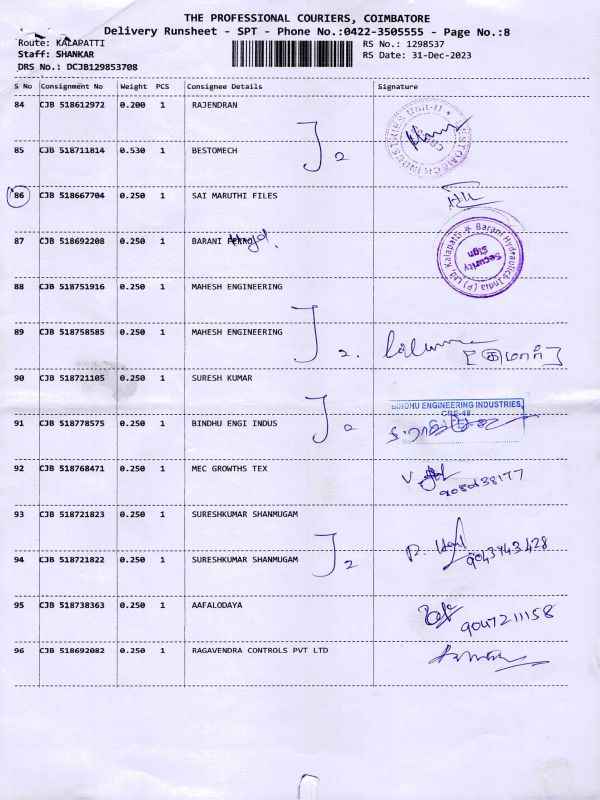 THE PROFESSIONAL COURIERS, COIMBATORE
Delivery Runsheet - SPT - Phone No.:0422-3505555 - Page No.:8
Route: KALAPATTI
RS No.: 1298537
Staff: SHANKAR
RS Date: 31-Dec-2023
DRS No.: DCJB129853708
S No Consignment No Weight PCS Consignee Details Signature
84 CJB 518612972 0.200 1 RAJENDRAN
85 CJB 518711814 0.530 1 BESTOMECH
2
86 CJB 518667704 0.250 1 SAI MARUTHI FILES
87 CJB 518692208 0.250 1 BARANI
Barani Hydraulics India (P) Ltd, Kalapatti
Security
Sign
88 CJB 518751916 0.250 1 MAHESH ENGINEERING
89 CJB 518758585 0.250 1 MAHESH ENGINEERING
2.
[குமார்]
90 CJB 518721105 0.250 1 SURESH KUMAR
91 CJB 518778575 0.250 1 BINDHU ENGI INDUS
2
BINDHU ENGINEERING INDUSTRIES,
92 CJB 518768471 0.250 1 MEC GROWTHS TEX
93 CJB 518721823 0.250 1 SURESHKUMAR SHANMUGAM
94 CJB 518721822 0.250 1 SURESHKUMAR SHANMUGAM
2
9043943428
95 CJB 518738363 0.250 1 AAFALODAYA
9047211158
96 CJB 518692082 0.250 1 RAGAVENDRA CONTROLS PVT LTD